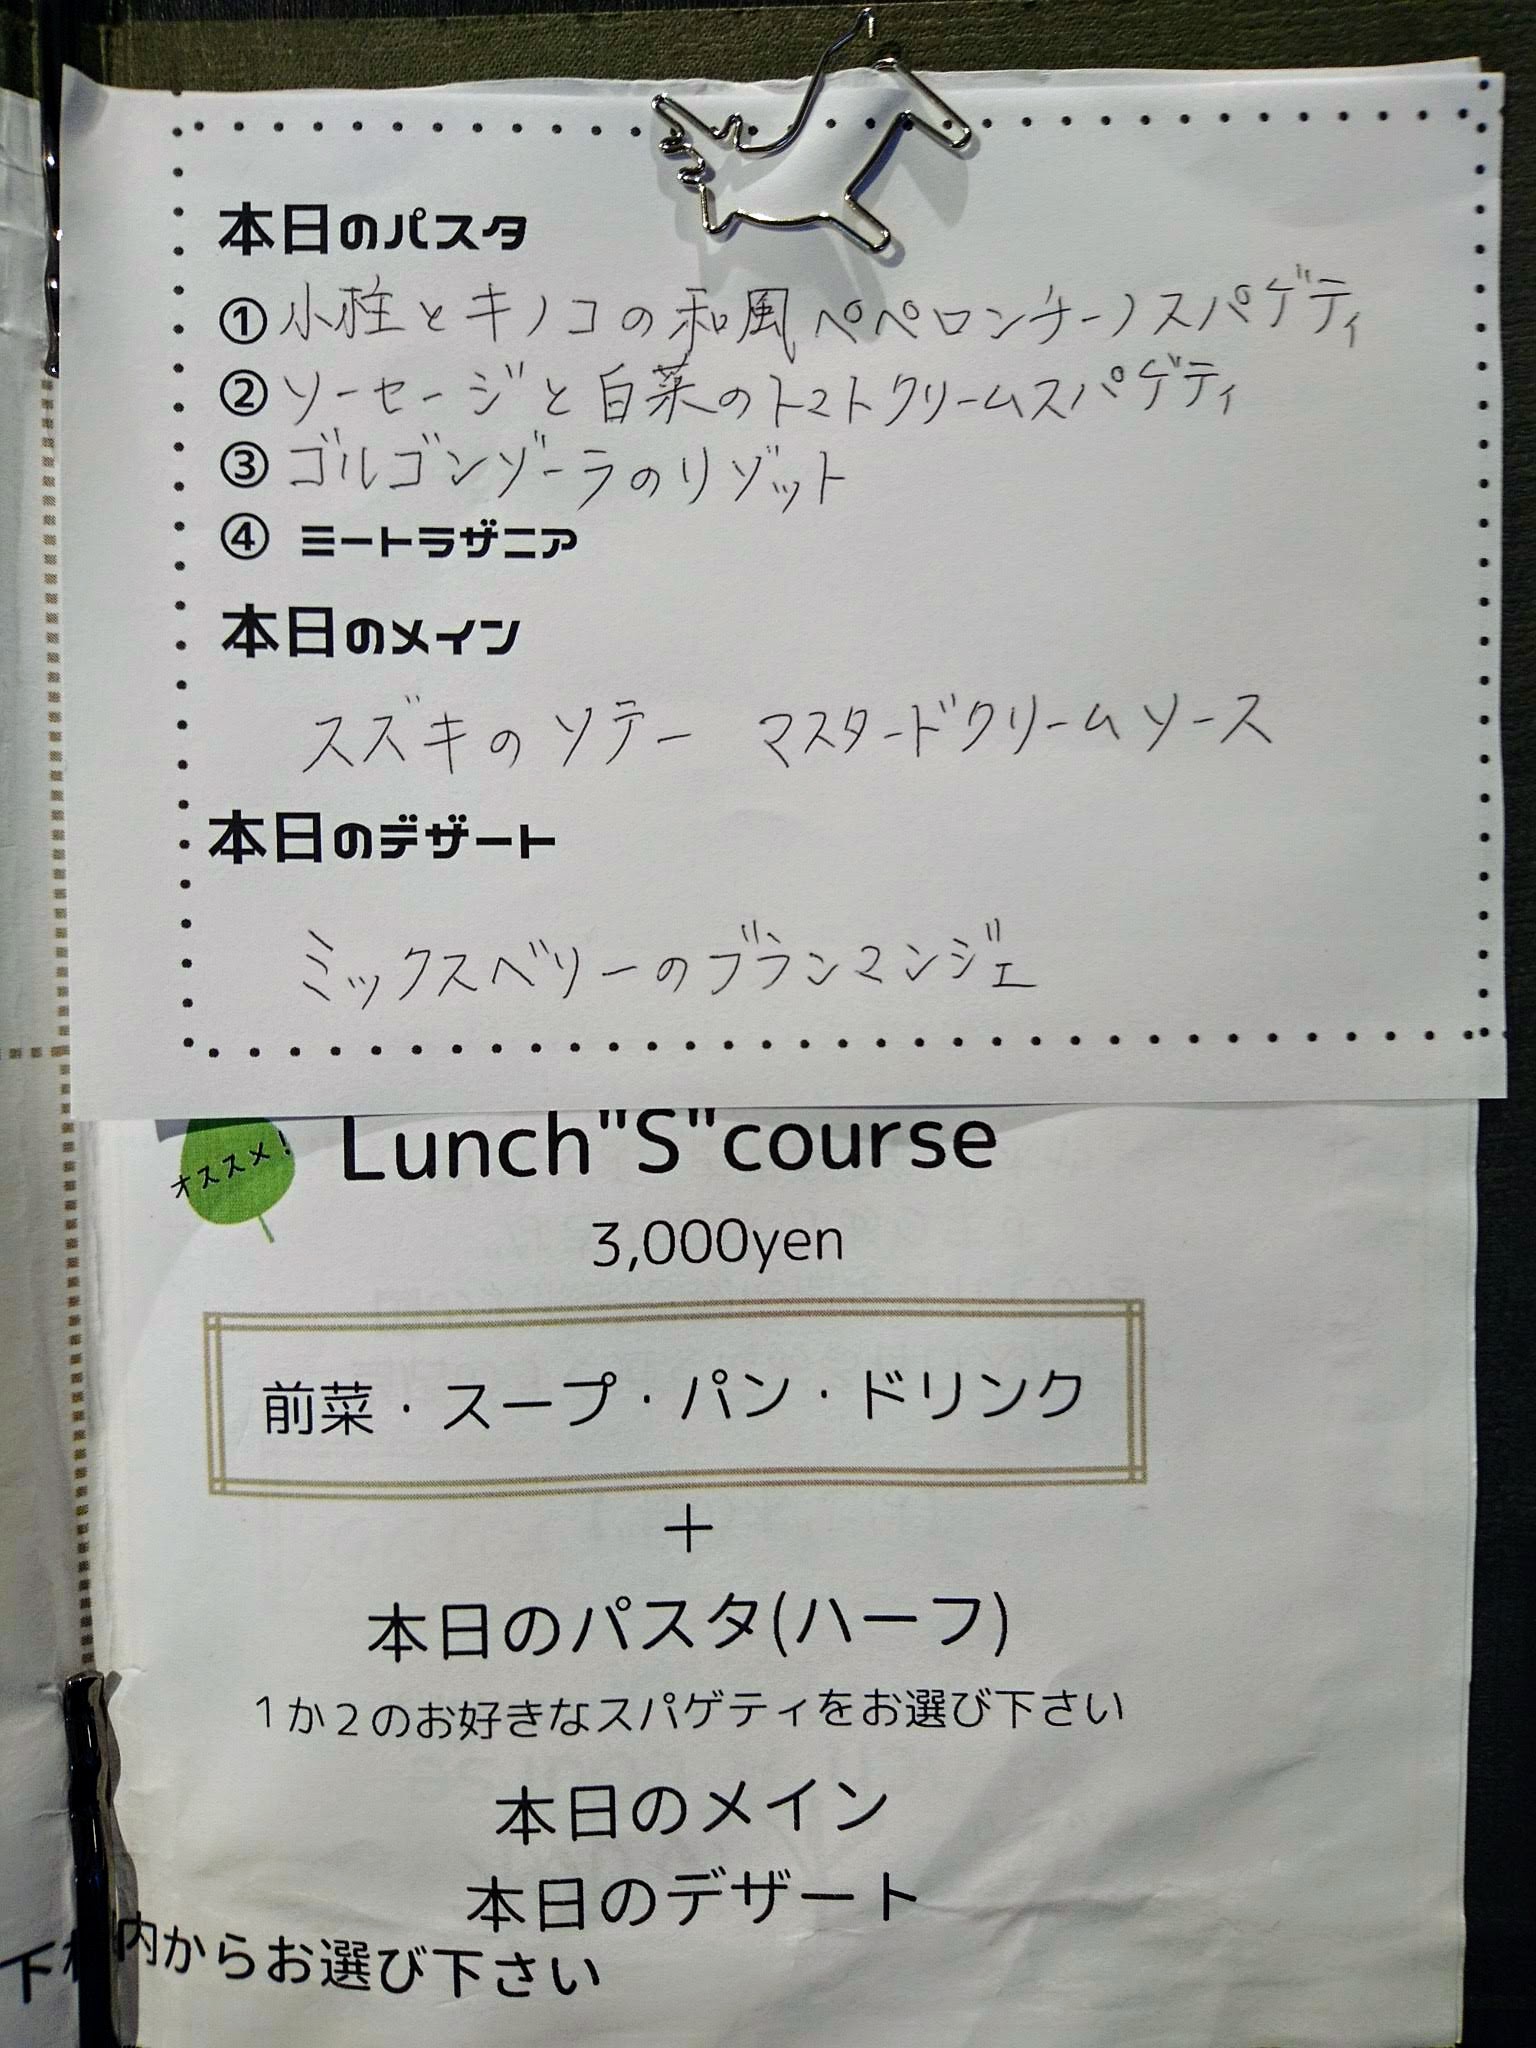 本日のパスタ
① 小柱とキノコの和風ペペロンチーノスパゲティ
② ソーセージと白菜のトマトクリームスパゲティ
③ ゴルゴンゾーラのリゾット
④ ミートラザニア
本日のメイン
スズキのソテー マスタードクリームソース
本日のデザート
ミックスベリーのブランマンジェ
オススメ!
Lunch"S"course
3,000yen
前菜・スープ・パン・ドリンク
+
本日のパスタ(ハーフ)
1か2のお好きなスパゲティをお選び下さい
本日のメイン
本日のデザート
内からお選び下さい